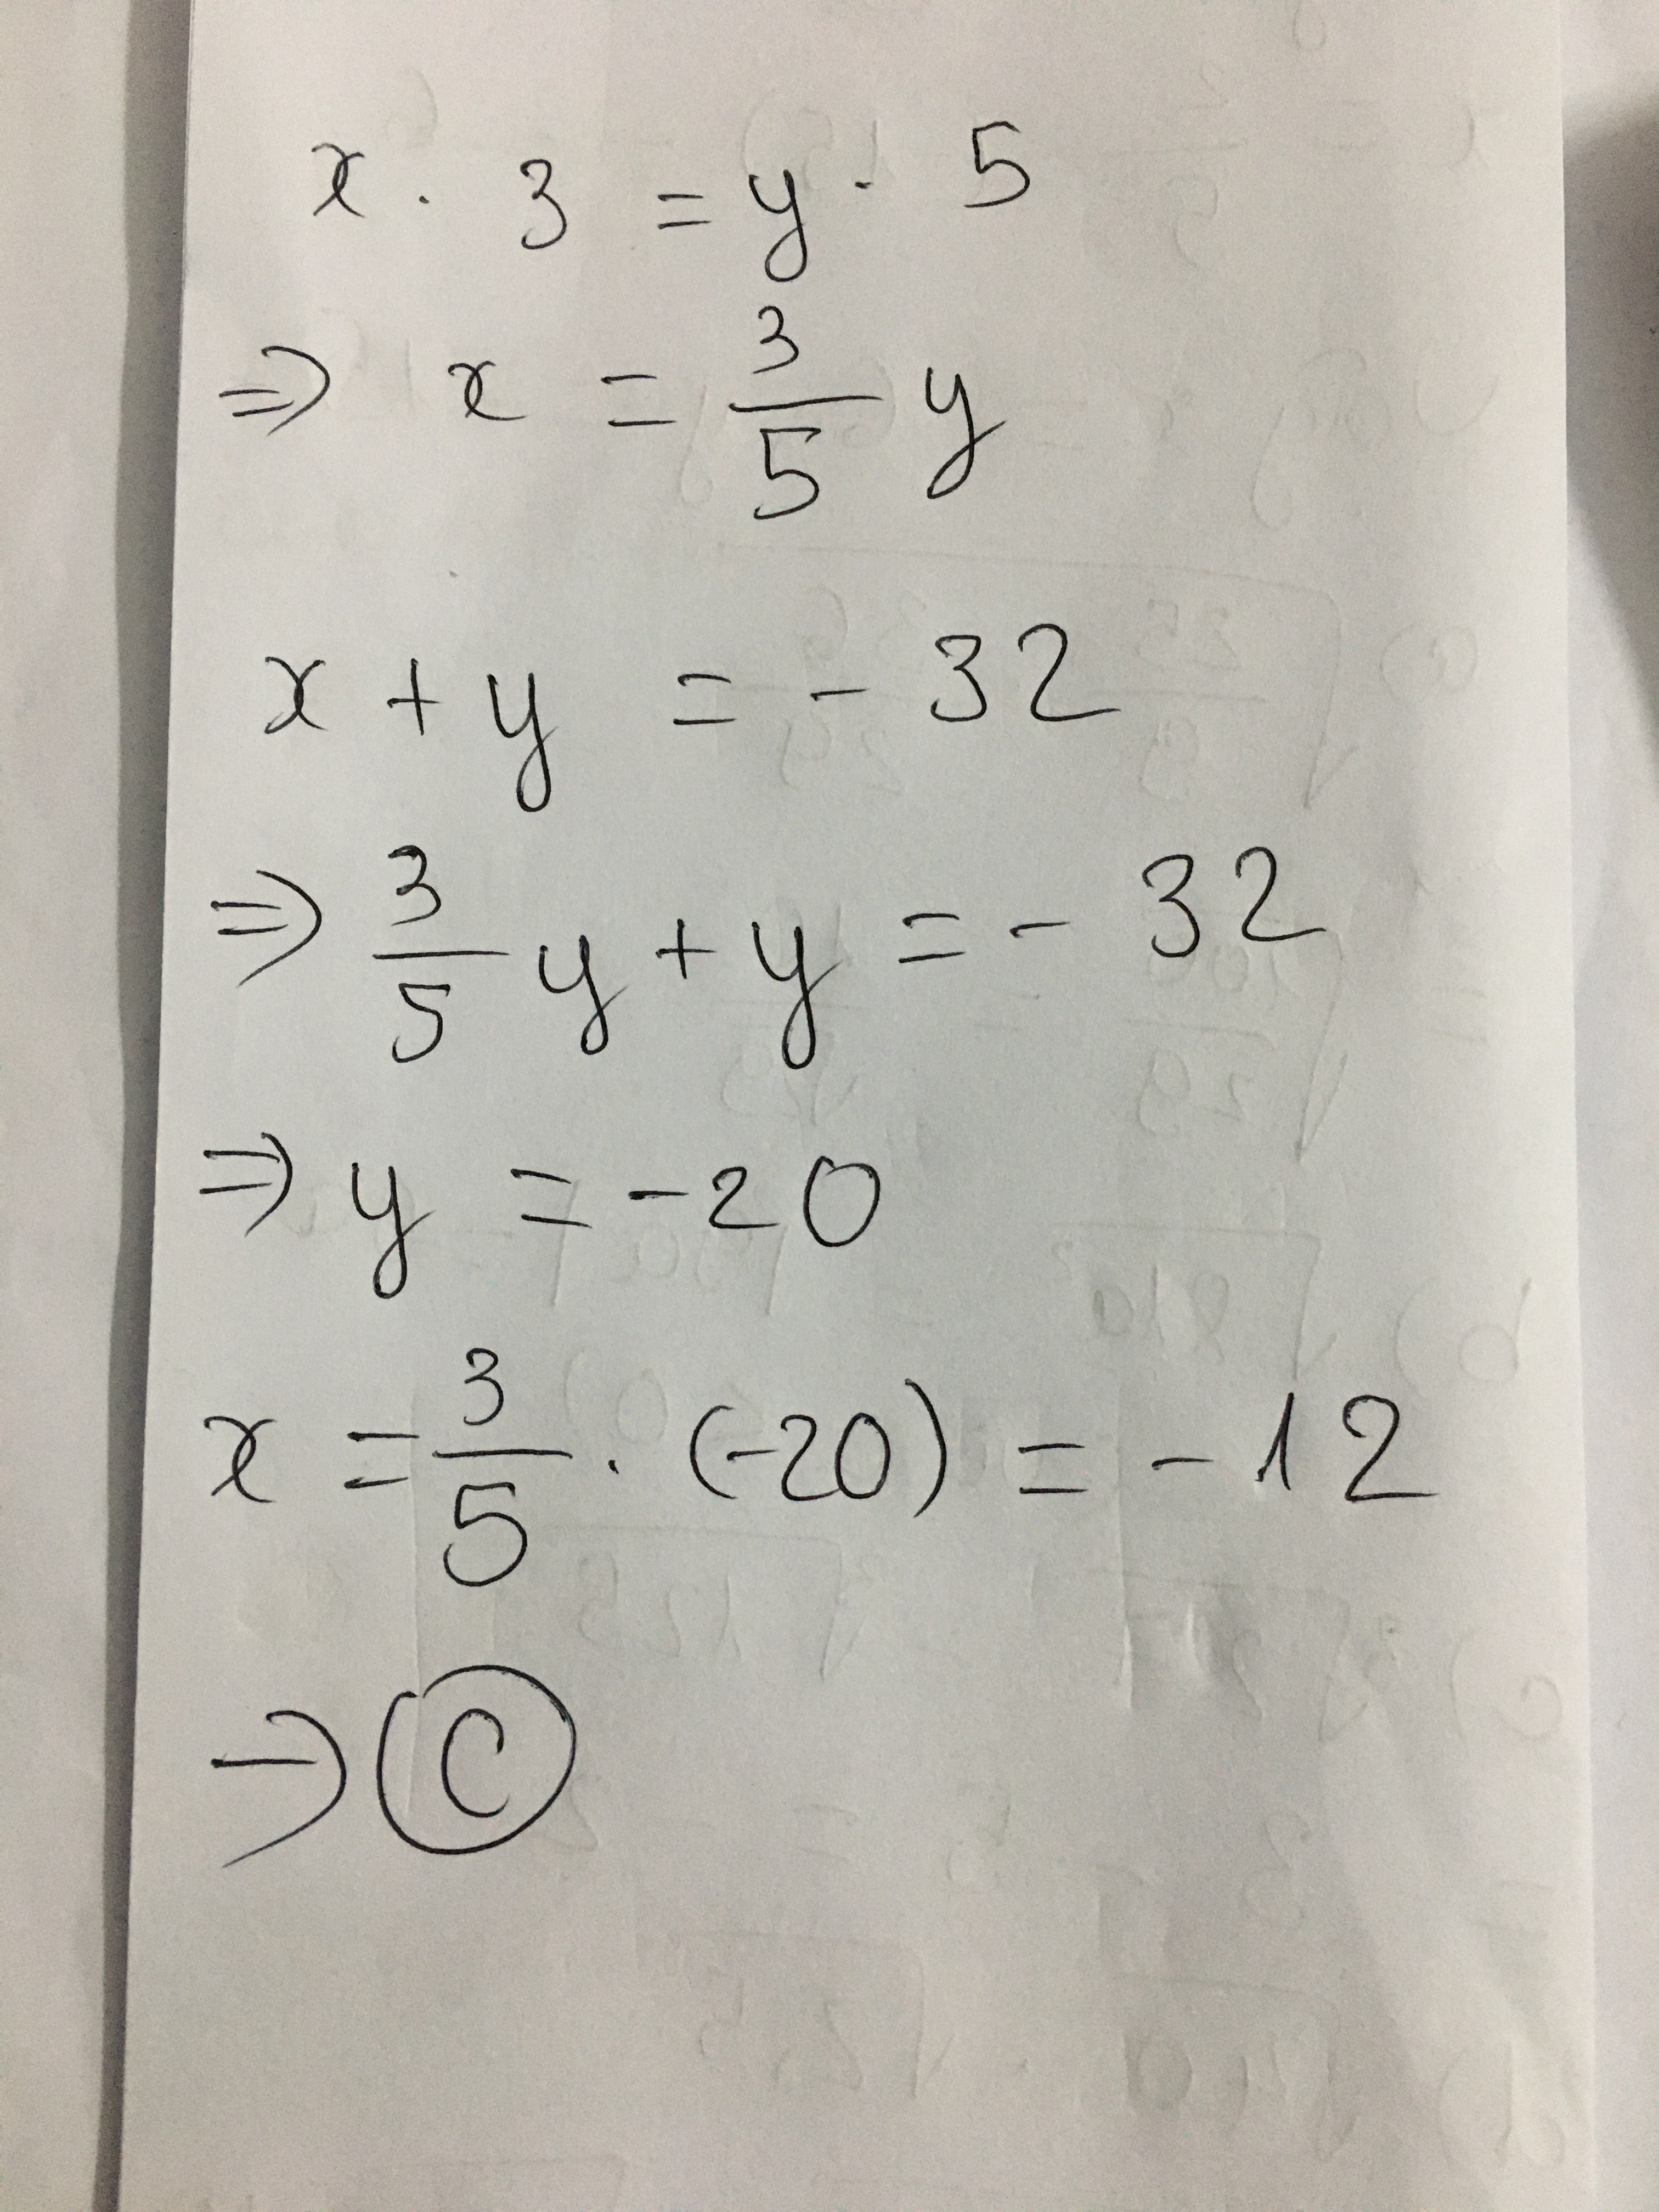 x . 3 = y . 5
⇒ x = 3/5 y
x + y = - 32
⇒ 3/5 y + y = - 32
⇒ y = -20
x = 3/5 . (-20) = - 12
→ C